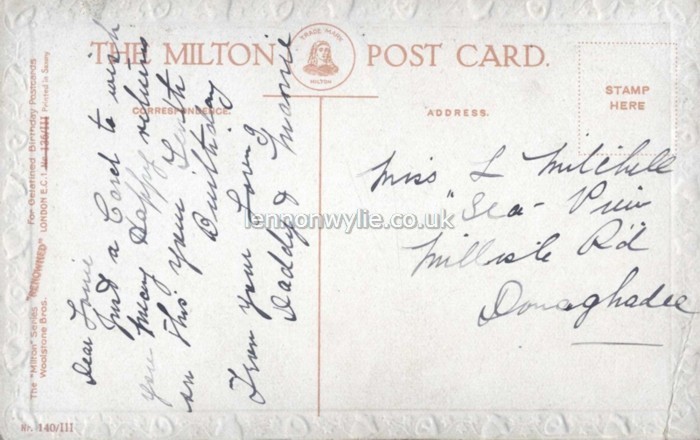 THE MILTON POST CARD.
TRADE MARK
MILTON
CORRESPONDENCE.
ADDRESS.
STAMP
HERE
Dear
Just a Card to wish
you many Happy returns
on this your Tenth
Birthday
From your Loving
Daddy & Mamie
Miss L Mitchell
"Sea-View
Millisle Rd
Donaghadee
The "Milton" Series "RENOWNED" For Gelatined Birthday Postcards
Woolstone Bros. LONDON E.C.1 Nr. 136/III Printed in Saxony
Nr. 140/III
lennonwylie.co.uk